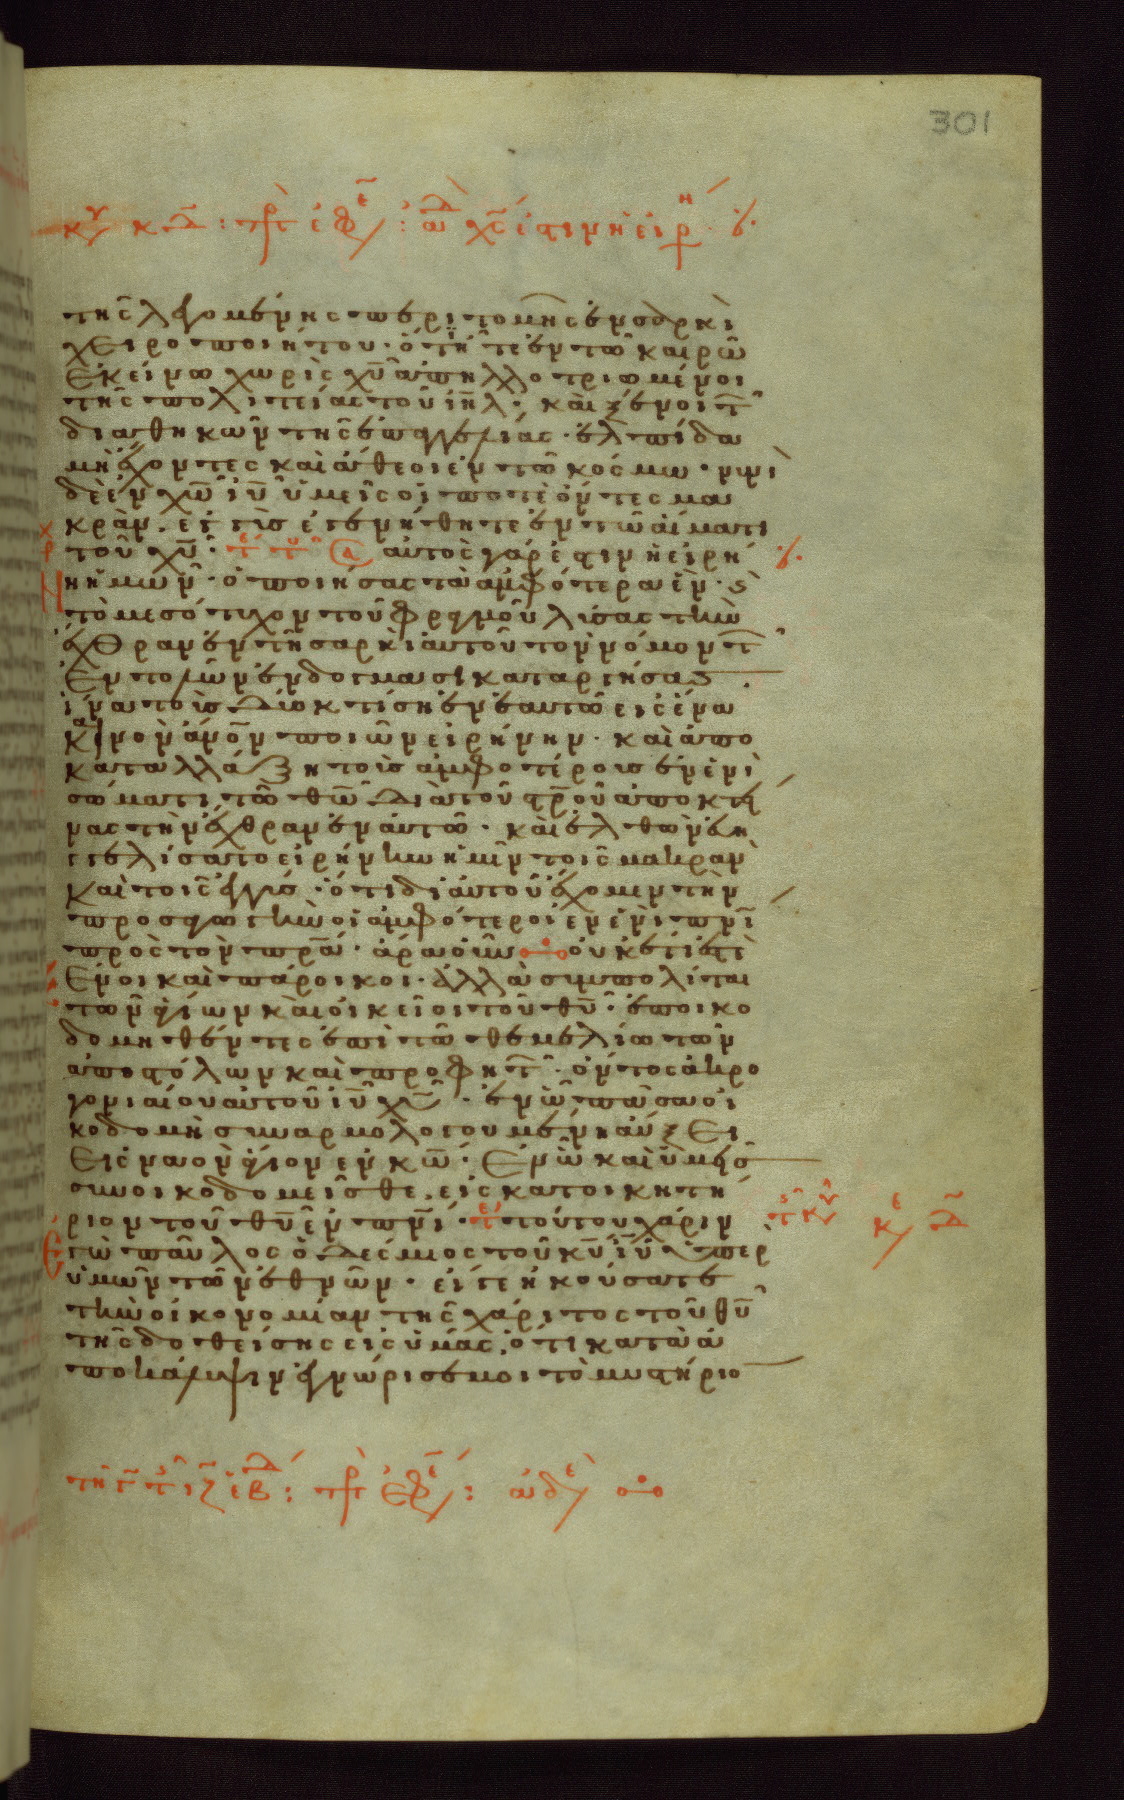 301
κυ κδ : πρ εφε : αδ χς ἐστιν ἡ εἰρη
τῆς λεγομένης περιτομῆς ἐν σαρκὶ
χειροποιήτου · ὅτι ἦτε ἐν τῶ καιρῶ
ἐκείνω χωρὶς χυ ἀπηλλοτριωμένοι
τῆς πολιτείας τοῦ ιηλ · καὶ ξένοι τ
διαθηκῶν τῆς ἐπαγγελίας · ἐλπίδα
μὴ ἔχοντες καὶ ἄθεοι ἐν τῶ κόσμω · νυνὶ
δὲ ἐν χω ιυ ὑμεῖς οἱ ποτὲ ὄντες μα
κρὰν, ἐγγὺς ἐγενήθητε ἐν τῶ αἵματι
τοῦ χυ · αὐτὸς γάρ ἐστιν ἡ εἰρή
νη ἡμῶν · ὁ ποιήσας τὰ ἀμφότερα ἓν · κ
τὸ μεσότυχον τοῦ φραγμοῦ λύσας τὴν
ἔχθραν ἐν τῆ σαρκὶ αὐτοῦ τὸν νόμον τ
ἐντολῶν ἐν δόγμασι καταργήσας ·
ἵνα τοὺς δύο κτίση ἐν ἑαυτῶ εἰς ἕνα
καινὸν ἄνον ποιῶν εἰρήνην · καὶ ἀπο
καταλλάξη τοὺς ἀμφοτέρους ἐν ἑνὶ
σώματι τῶ θω διὰ τοῦ στρου ἀποκτεί
νας τὴν ἔχθραν ἐν αὐτῶ · καὶ ἐλθὼν εὐη
γγελίσατο εἰρήνην ἡμῖν τοῖς μακρὰν
καὶ τοῖς ἐγγύς · ὅτι δι αὐτοῦ ἔχομεν τὴν
προσαγωγὴν οἱ ἀμφότεροι ἐν ἑνὶ πνι
πρὸς τὸν πρα · ἄρα οὖν οὐκέτι ἐστὲ
ξένοι καὶ πάροικοι · ἀλλὰ συμπολίται
τῶν ἁγίων καὶ οἰκεῖοι τοῦ θυ · ἐποικο
δομηθέντες ἐπὶ τῶ θεμελίω τῶν
ἀποστόλων καὶ προφητ · ὄντος ἀκρο
γονιαίου αὐτοῦ ιυ χυ · ἐν ὧ πᾶσα οἰ
κοδομὴ συναρμολογουμένη αὔξει
εἰς ναὸν ἅγιον ἐν κω · ἐν ὧ καὶ ὑμεῖς
συνοικοδομεῖσθε, εἰς κατοικητή
ριον τοῦ θυ ἐν πνι · τούτου χάριν
ἐγὼ παῦλος ὁ δέσμιος τοῦ κυ ιυ ὑπὲρ
ὑμῶν τῶν ἐθνῶν · εἴγε ἠκούσατε
τὴν οἰκονομίαν τῆς χάριτος τοῦ θυ
τῆς δοθείσης εἰς ὑμᾶς, ὅτι κατὰ ἀ
ποκάλυψιν ἐγνώρισέ μοι τὸ μυστήριο